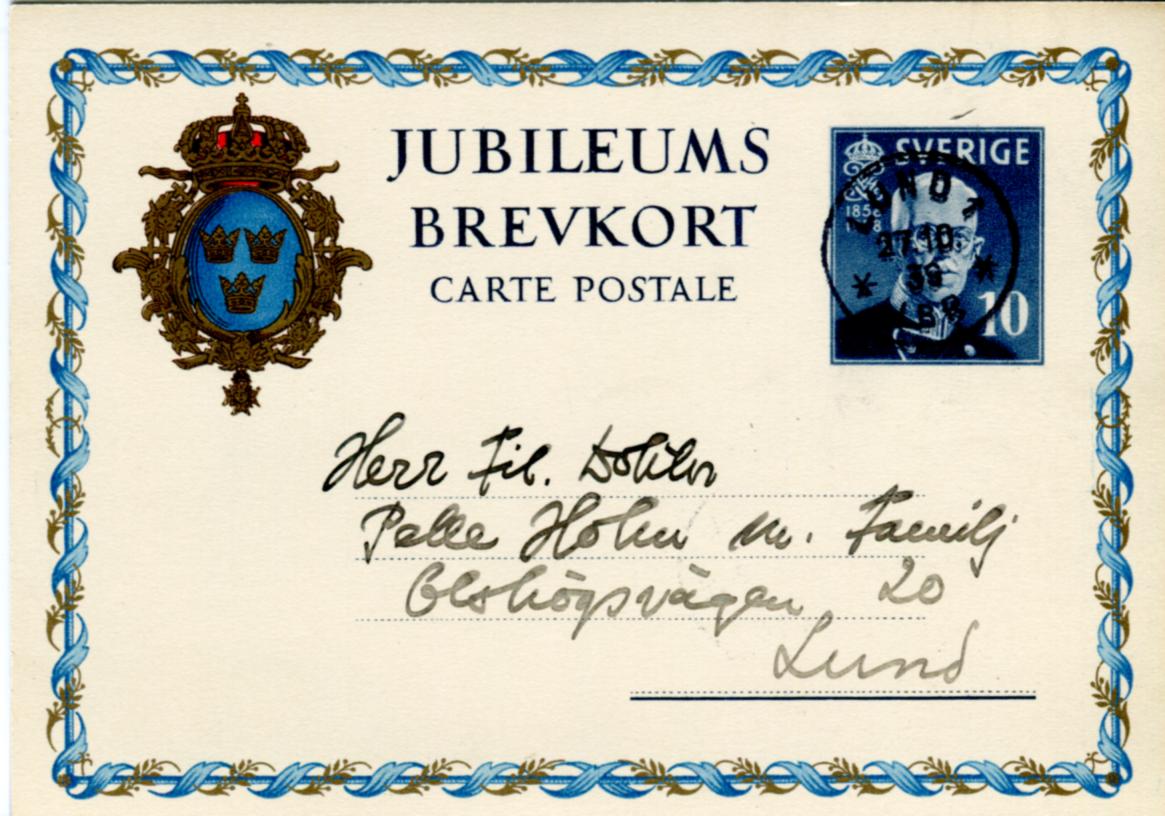 JUBILEUMS
BREVKORT
CARTE POSTALE
SVERIGE
1858
10
LUND 1
27.10.
39
LBR
Herr Fil. Doktor
Palle Holm m. Familj
20
Lund